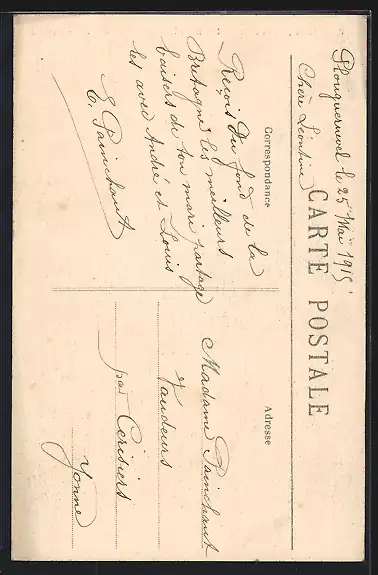 Plouguernevel le 25 Mai 1915
Chère Léontine
CARTE POSTALE
Correspondance
Reçois du fond de la
Bretagne les meilleurs
baisers de ton mari partage
les avec André et Louis
E. Painchaut
Adresse
Madame Painchaut
Vaudeurs
par Cerisiers
Yonne